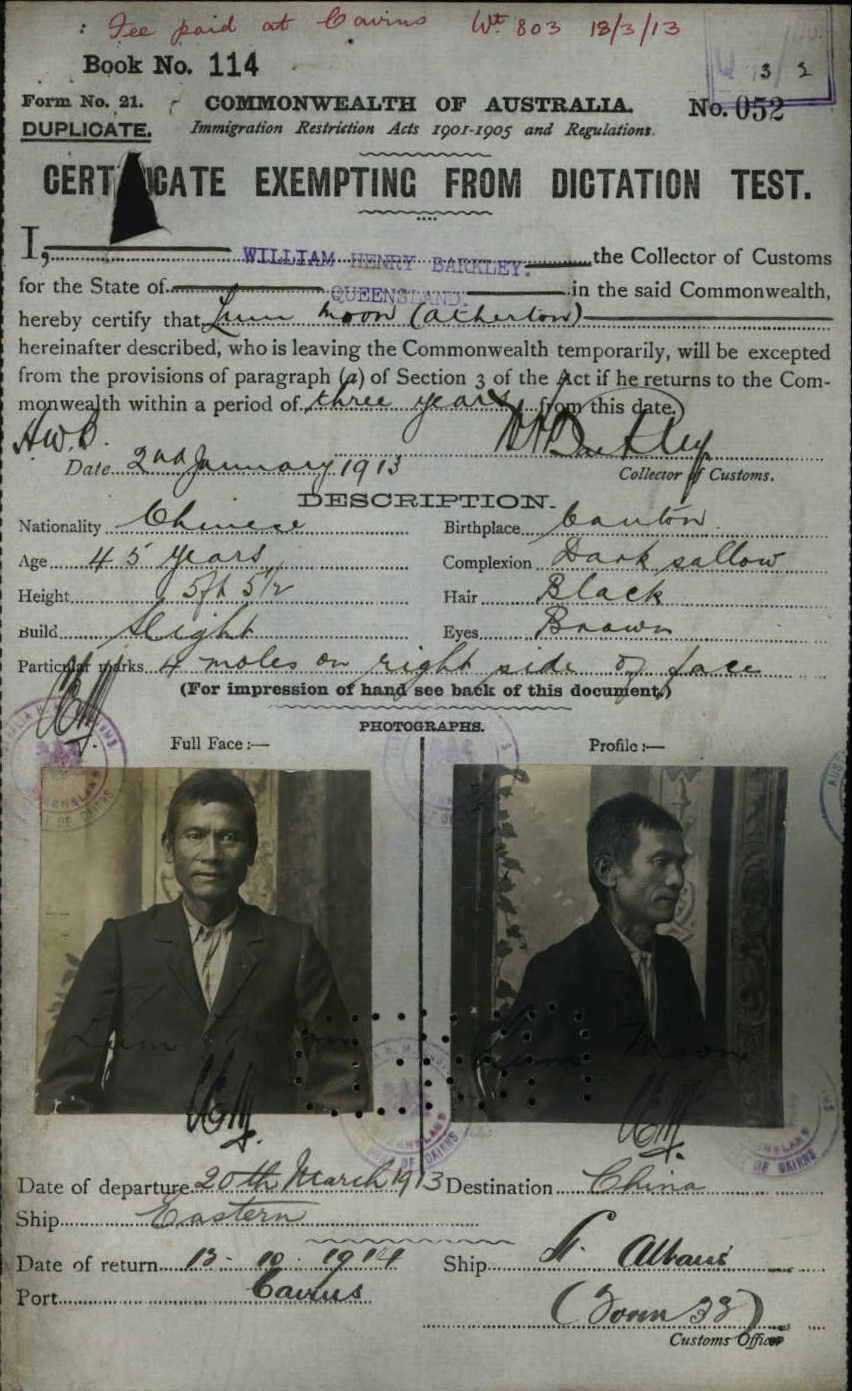 : Fee paid at Cairns Wt 803 18/3/13
Book No. 114
3 2
Form No. 21. COMMONWEALTH OF AUSTRALIA. No. 052
DUPLICATE. Immigration Restriction Acts 1901-1905 and Regulations.
CERT CATE EXEMPTING FROM DICTATION TEST.
I, WILLIAM HENRY BARKLEY. the Collector of Customs
for the State of QUEENSLAND. in the said Commonwealth,
hereby certify that Lum Moon (Atherton)
hereinafter described, who is leaving the Commonwealth temporarily, will be excepted
from the provisions of paragraph (a) of Section 3 of the Act if he returns to the Com-
monwealth within a period of three years from this date.
Date 2nd January 1913 Collector of Customs.
DESCRIPTION.
Nationality Chinese Birthplace Canton
Age 45 years Complexion Dark sallow
Height 5ft 5 1/2 Hair Black
Build Slight Eyes Brown
Particular marks 4 moles on right side of face
(For impression of hand see back of this document.)
PHOTOGRAPHS.
Full Face :— Profile :—
Lum Moon
Date of departure 20th March 1913 Destination China
Ship Eastern
Date of return 13-10-1914 Ship St. Albans
Port Cairns
(Form 33)
Customs Officer